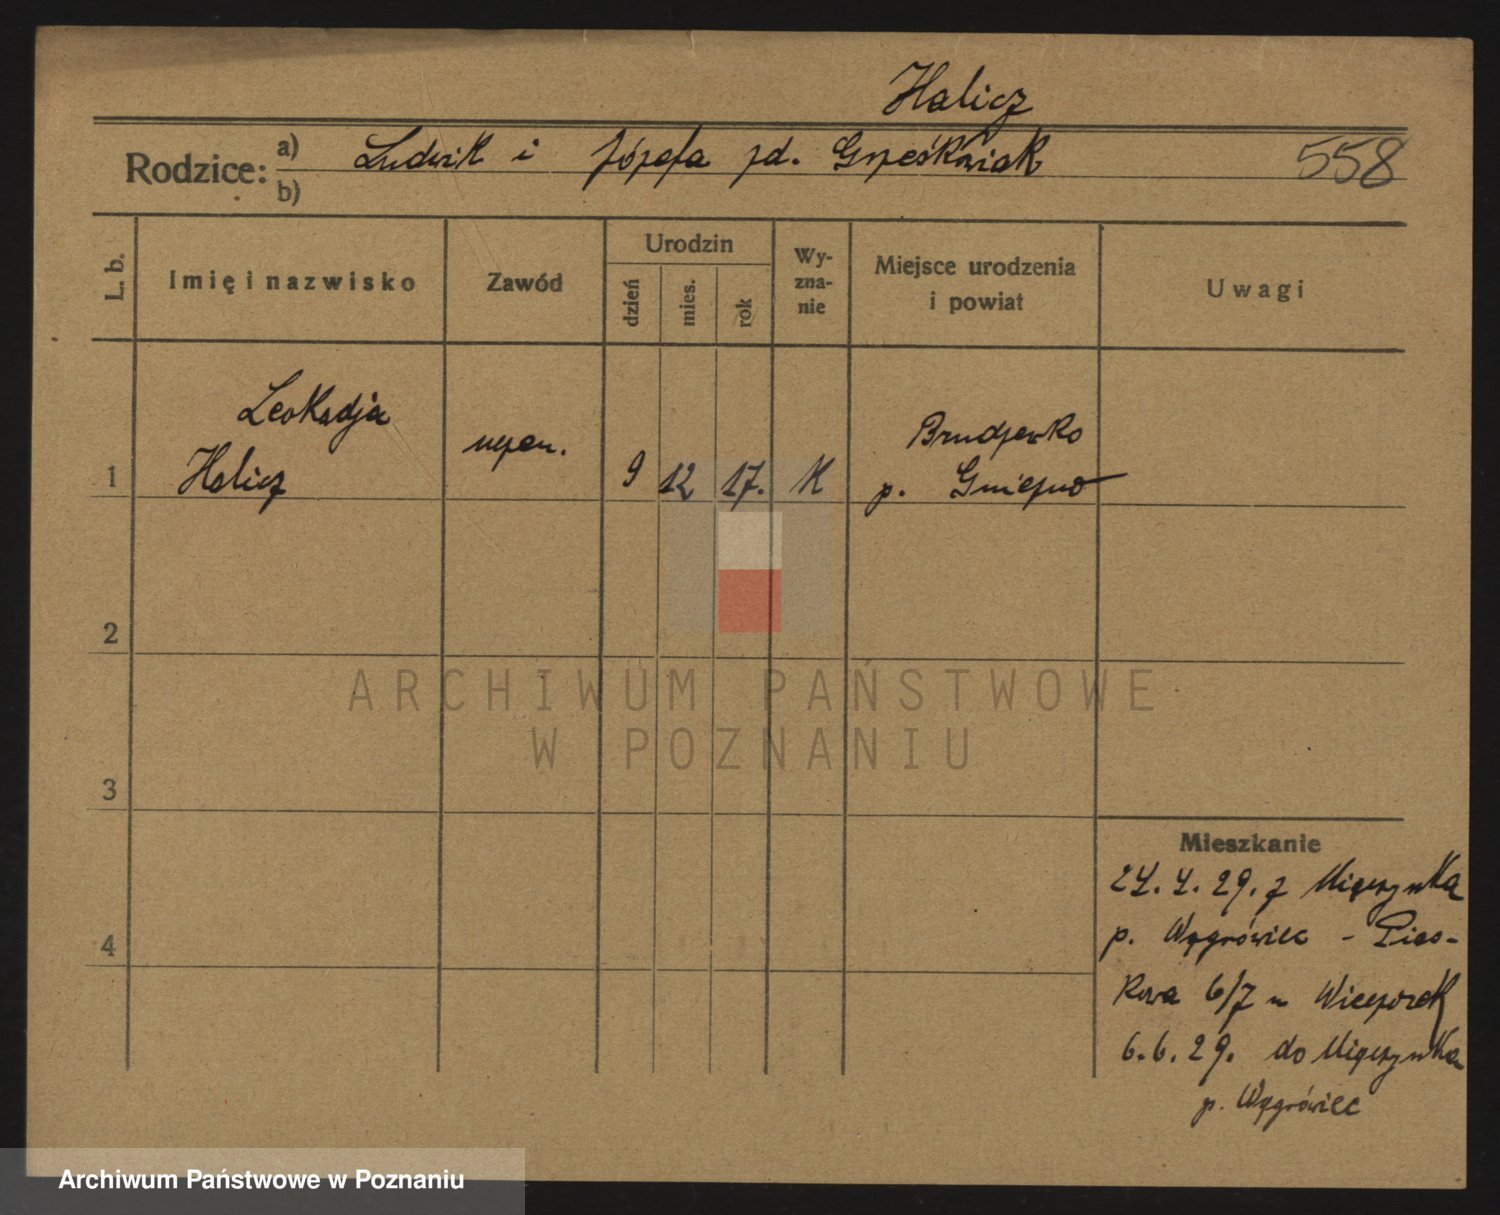 Halicz
Rodzice: a) Ludwik i Józefa zd. Grześkowiak 558
b)
L. b. Imię i nazwisko Zawód Urodzin dzień mies. rok Wy-zna-nie Miejsce urodzenia i powiat Uwagi
Leokadja
1 Halicz uczen. 9 12 17. K Brudzewko
p. Gniezno
2
ARCHIWUM PAŃSTWOWE
W POZNANIU
3
Mieszkanie
24. 4. 29. z Mięczynka
4 p. Wągrówiec - Pias-
kowa 6/7 u Wieczorek
6. 6. 29. do Mięczynka
p. Wągrówiec
Archiwum Państwowe w Poznaniu